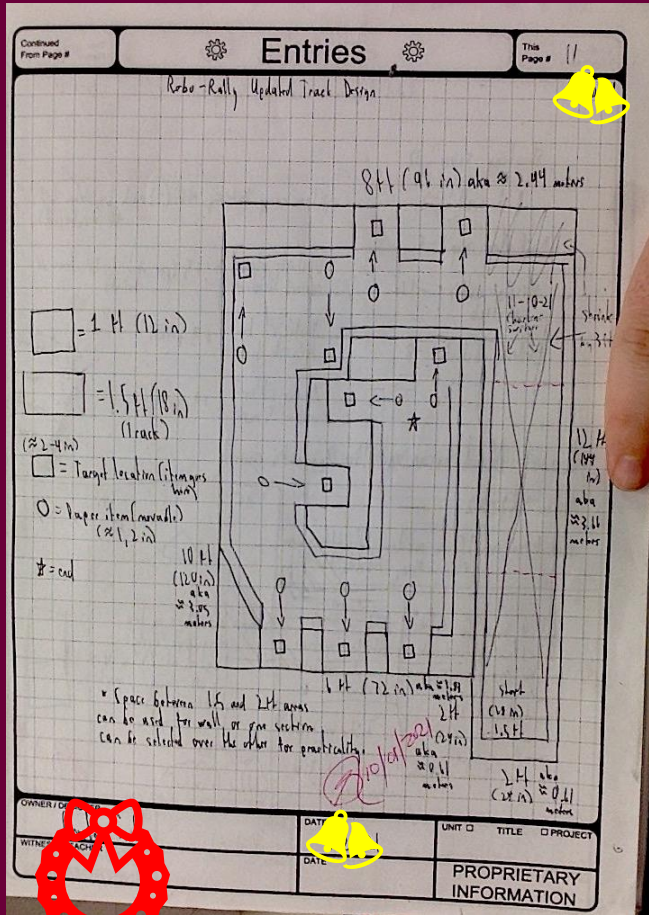 Continued
From Page #
Entries
This
Page # 11
Robo-Rally Updated Track Design
8ft (96 in) aka ≈ 2.44 meters
11-10-21
shrink
by 3 ft
□ = 1 ft (12 in)
= 1.5 ft (18 in)
(Track)
(≈2-4 in)
□ = Target location (item goes
here)
O = Paper item (movable)
(≈1, 2 in)
☆ = end
12 ft
(144
in)
aka
≈3.66
meters
10 ft
(120 in)
aka
≈ 3.05
meters
6 ft (72 in) aka ≈ 1.81
meters
2 ft
(24 in)
aka
≈ 0.61
meters
start
(18 in)
1.5 ft
2 ft aka
(24 in) ≈ 0.61
meters
* Space between 1.5 and 2 ft areas
can be used for wall or one section
can be selected over the other for practicality.
10/01/2021
OWNER /
DATE
UNIT □ TITLE □ PROJECT
WITNESS
DATE
PROPRIETARY
INFORMATION